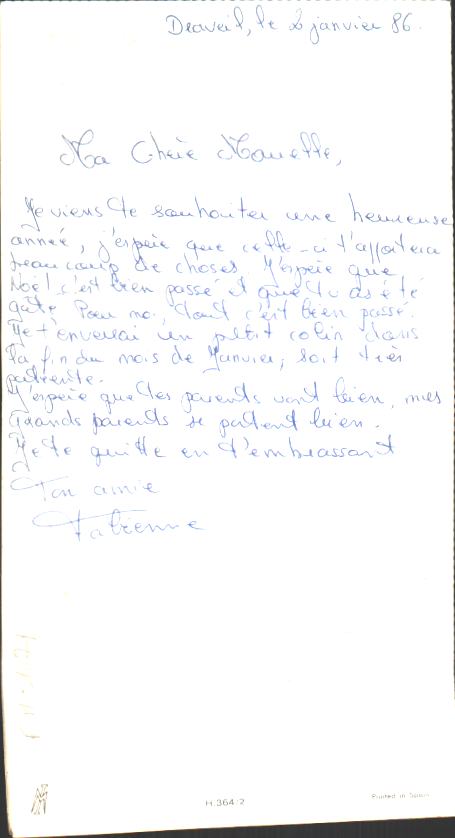 Draveil, le 2 janvier 86.
Ma Chère Manette,
Je viens te souhaiter une heureuse
année, j'espère que celle-ci t'apportera
beaucoup de choses. J'espère que
Noël c'est bien passé et que tu as été
gâté. Pour moi, tout c'est bien passé.
Je t'enverrai un petit colis dans
la fin du mois de Janvier, soit très
patiente.
J'espère que tes parents vont bien, mes
grands parents se portent bien.
Je te quitte en t'embrassant
Ton amie
Fabienne
H.364/2
Printed in Spain